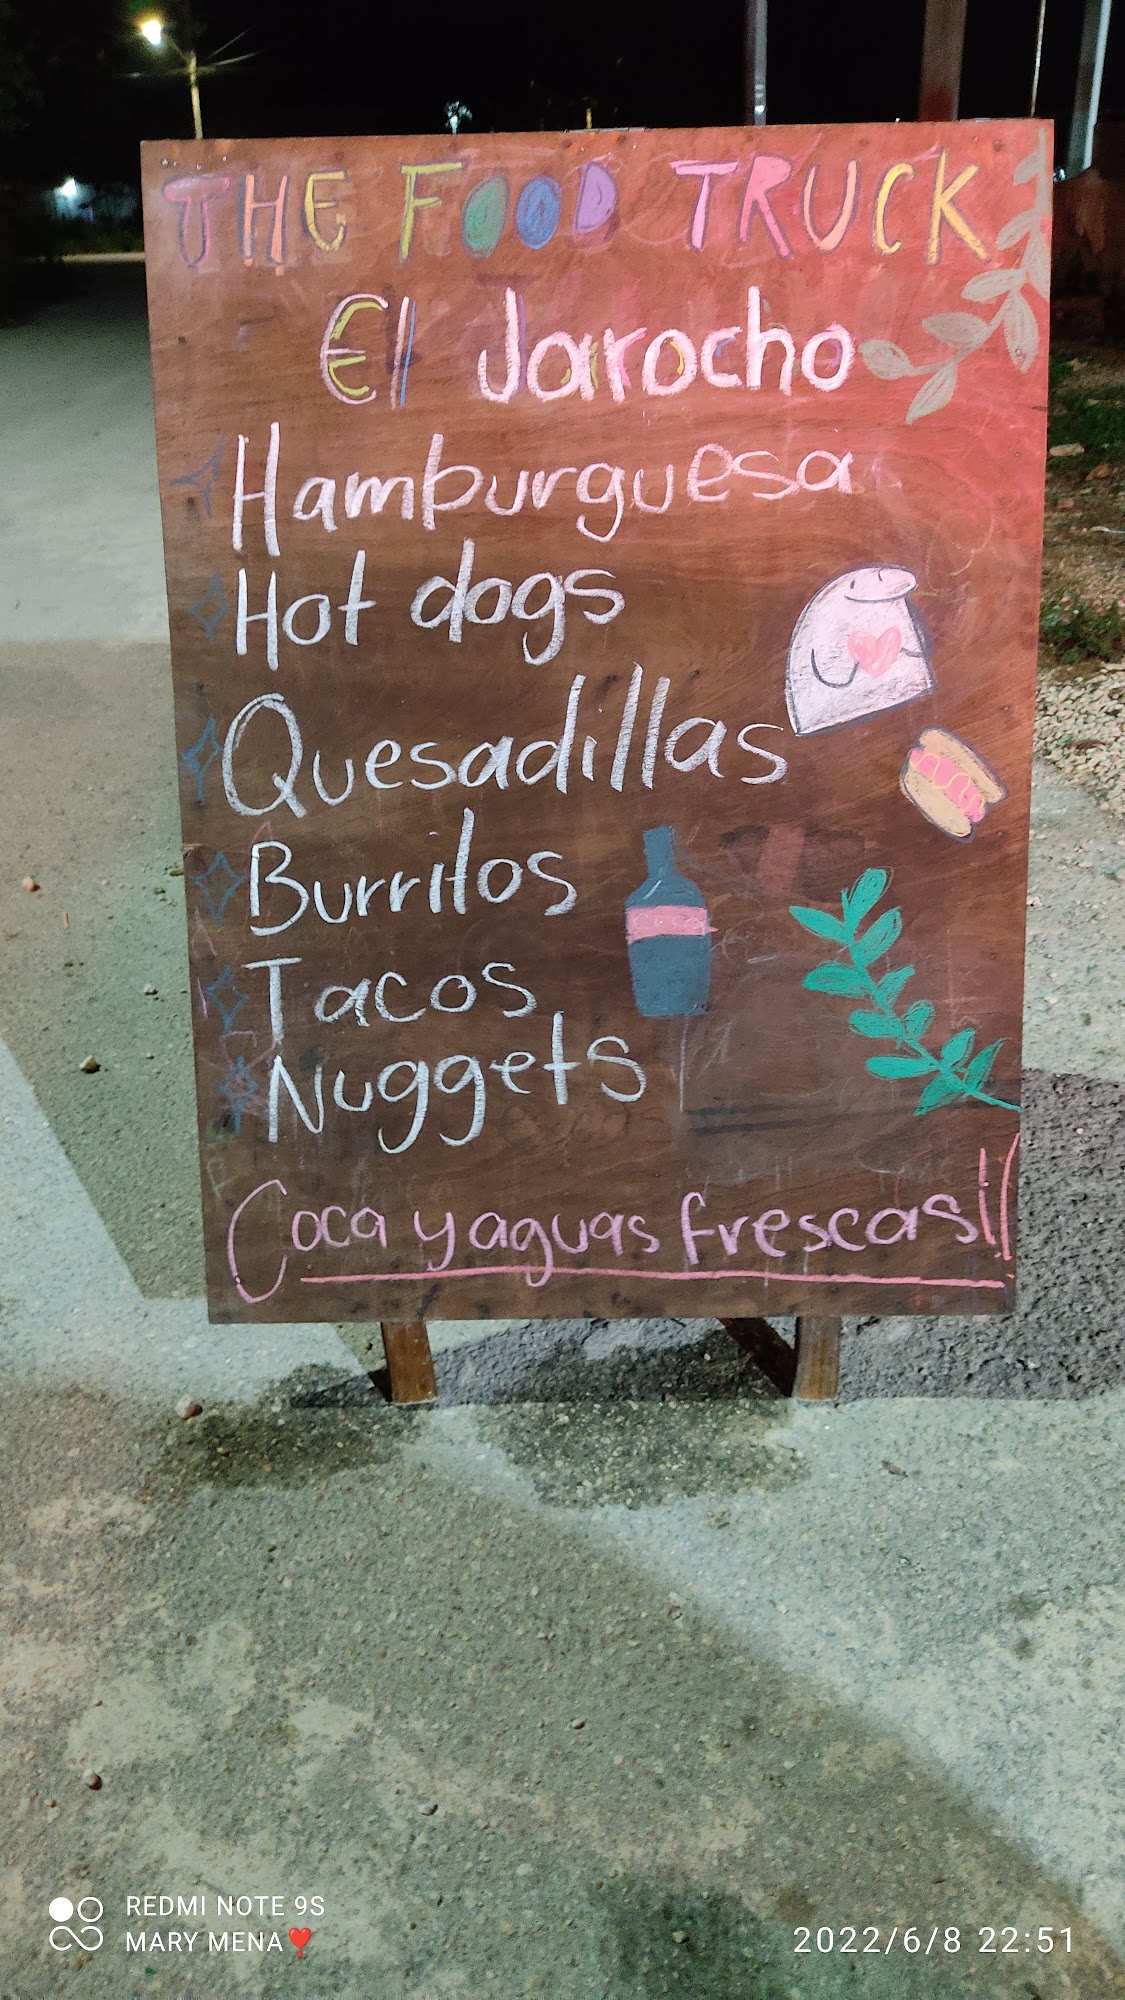 THE FOOD TRUCK
El Jarocho
Hamburguesa
Hot dogs
Quesadillas
Burritos
Tacos
Nuggets
Coca y aguas frescas!!
REDMI NOTE 9S
MARY MENA❤️
2022/6/8 22:51